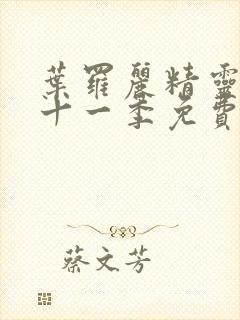 葉羅麗精靈
十一季免費
蔡文芳